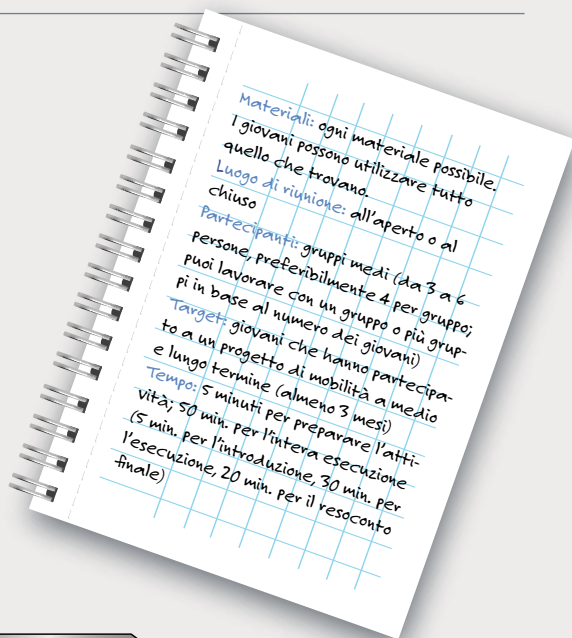 Materiali: ogni materiale possibile.
I giovani possono utilizzare tutto
quello che trovano.
Luogo di riunione: all'aperto o al
chiuso
Partecipanti: gruppi medi (da 3 a 6
persone, preferibilmente 4 per gruppo;
puoi lavorare con un gruppo o più grup-
pi in base al numero dei giovani)
Target: giovani che hanno partecipa-
to a un progetto di mobilità a medio
e lungo termine (almeno 3 mesi)
Tempo: 5 minuti per preparare l'atti-
vità; 50 min. per l'intera esecuzione
(5 min. per l'introduzione, 30 min. per
l'esecuzione, 20 min. per il resoconto
finale)